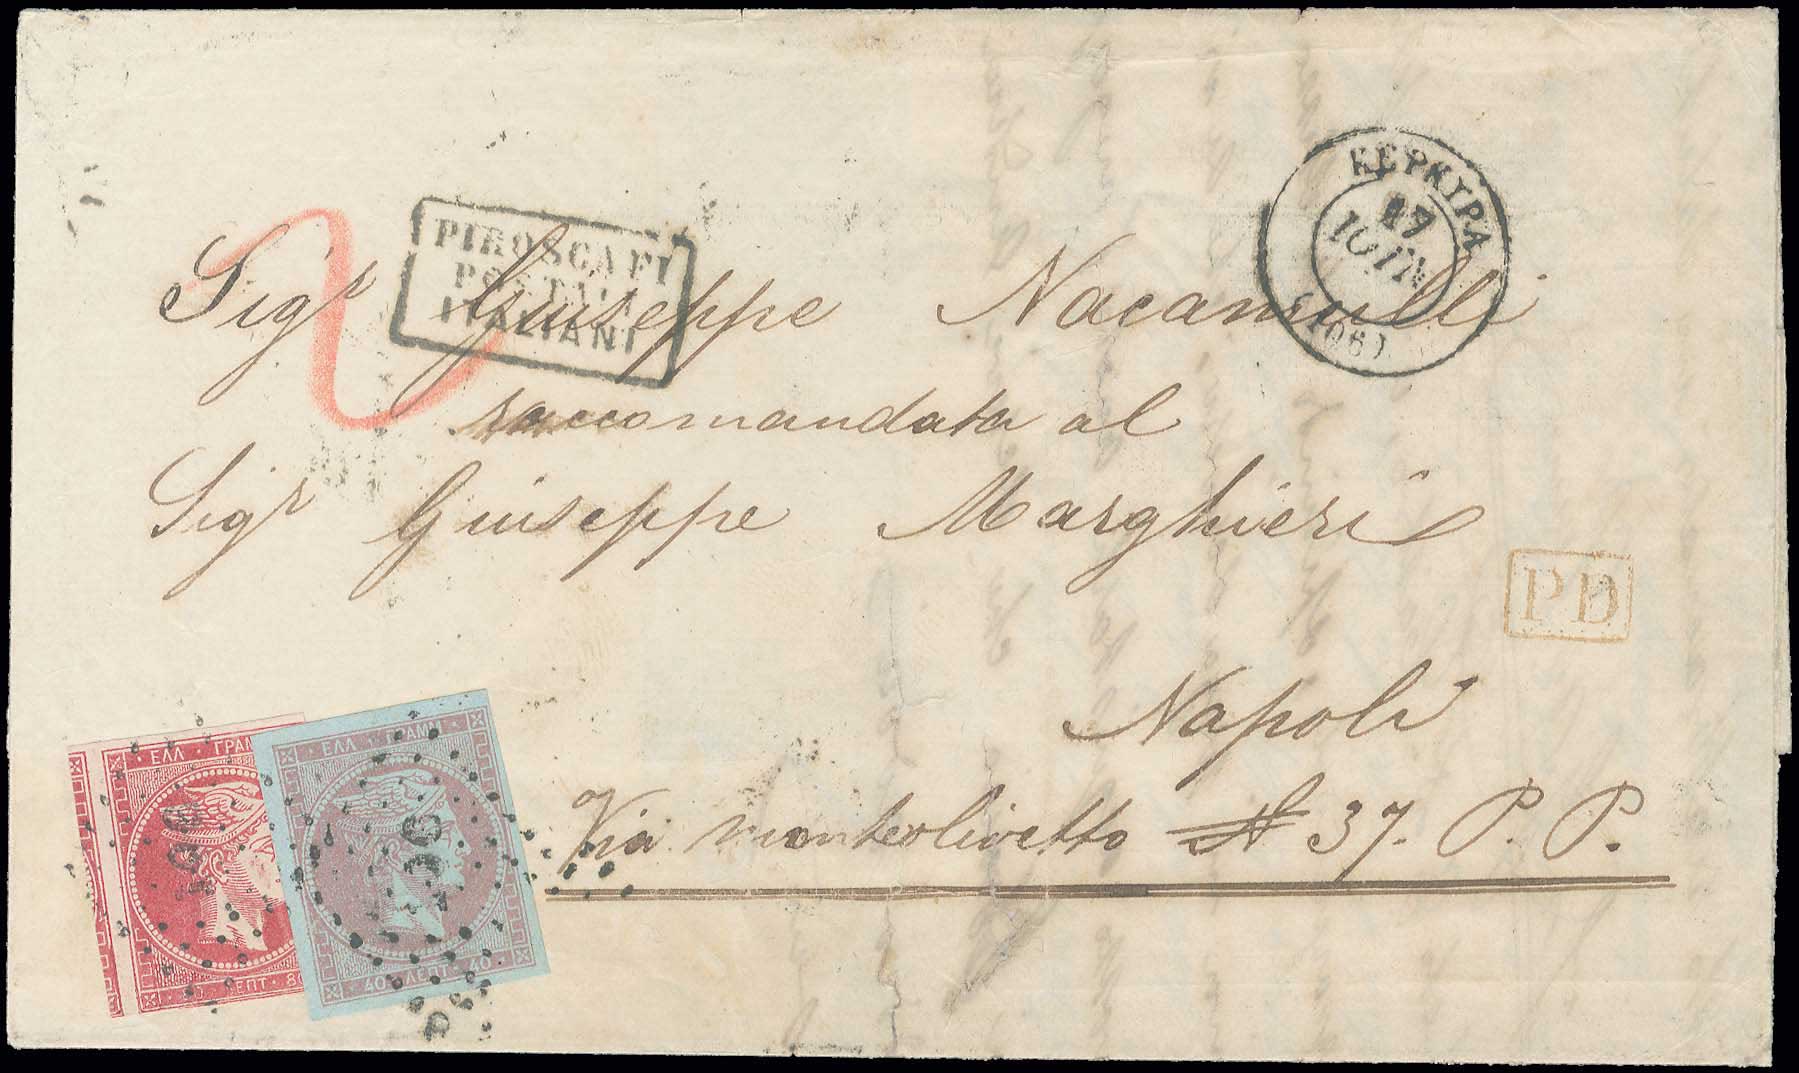 ΚΕΡΚΥΡΑ
17
ΙΟΥΝ
(106)
PIROSCAFI
POSTALI
ITALIANI
2
Sigr Giuseppe Nacamulli
raccomandata al
Sigr Giuseppe Marghieri
PD
Napoli
Via monteolivetto N 37. P. P.
ΕΛΛ · ΓΡΑΜ
80 ΛΕΠΤ · 80
ΕΛΛ · ΓΡΑΜΜ
40 · ΛΕΠΤ · 40
106
106